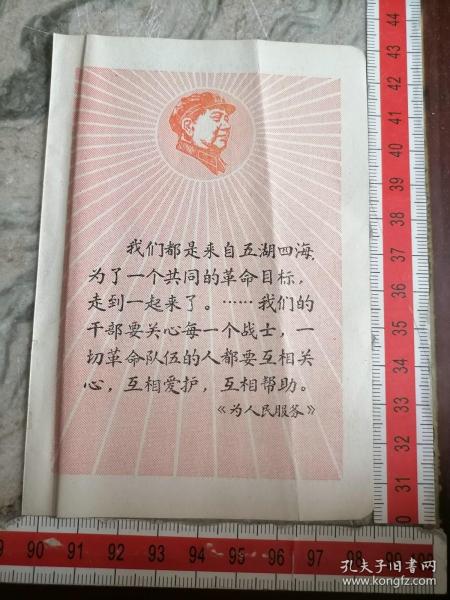 我们都是来自五湖四海,
为了一个共同的革命目标,
走到一起来了。……我们的
干部要关心每一个战士,一
切革命队伍的人都要互相关
心,互相爱护,互相帮助。
《为人民服务》
44
43
42
41
40
39
38
37
36
35
34
33
32
31
90 91 92 93 94 95 96 97 98 99 100
孔夫子旧书网
www.kongfz.com